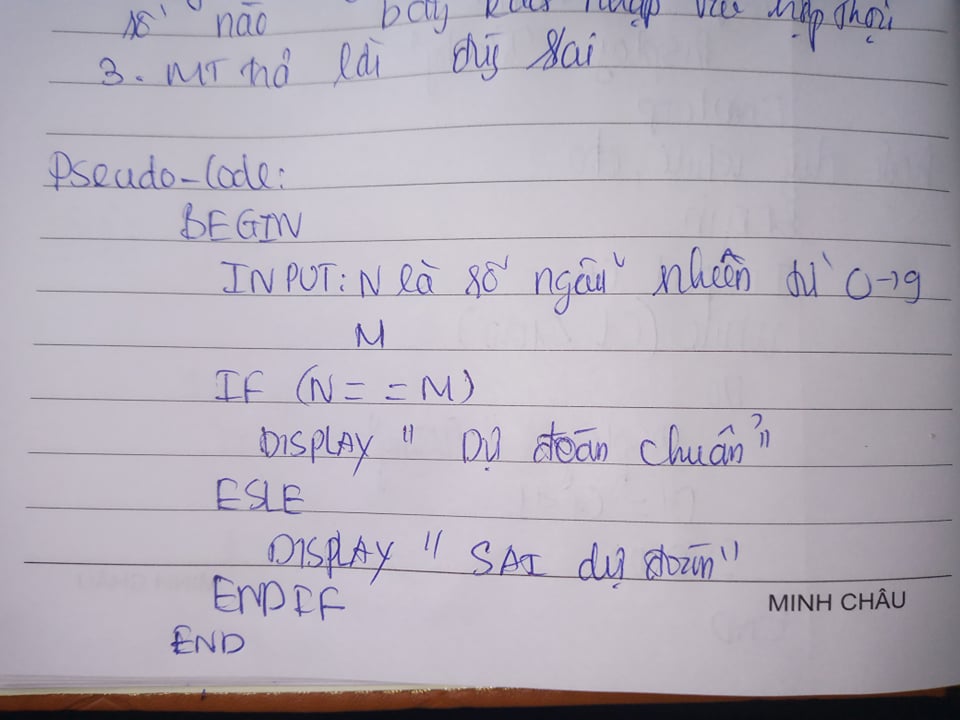 số nào bây nhập vào hộp thoại
3. MT trả lời đúng sai
Pseudo-Code:
BEGIN
INPUT: N là số ngẫu nhiên từ 0→9
M
IF (N = = M)
DISPLAY " Dự đoán chuẩn"
ESLE
DISPLAY " SAI dự đoán"
ENDIF
MINH CHÂU
END